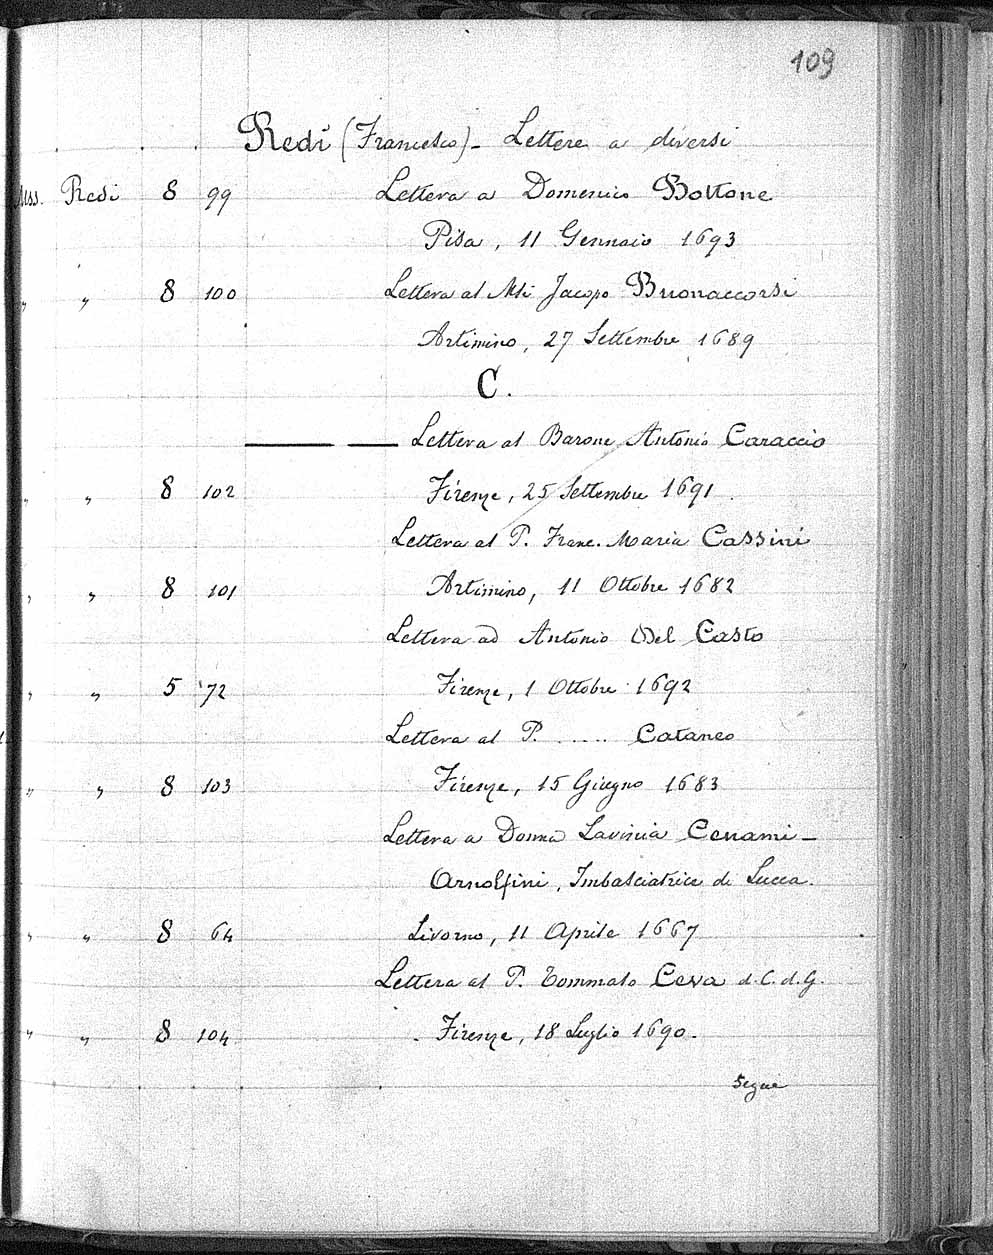 109
Redi (Francesco) - Lettere a diversi
Mss. Redi 8 99 Lettera a Domenico Bottone
Pisa, 11 Gennaio 1693
" " 8 100 Lettera al Jacopo Buonaccorsi
Artimino, 27 Settembre 1689
C.
Lettera al Barone Antonio Caraccio
" " 8 102 Firenze, 25 Settembre 1691
Lettera al P. Franc. Maria Cassini
" " 8 101 Artimino, 11 Ottobre 1682
Lettera ad Antonio Del Casto
" " 5 72 Firenze, 1 Ottobre 1692
Lettera al P. ..... Cataneo
" " 8 103 Firenze, 15 Giugno 1683
Lettera a Donna Lavinia Cenami-
Arnolfini, Imbasciatrice di Lucca.
" " 8 64 Livorno, 11 Aprile 1667
Lettera al P. Tommaso Ceva d. C. d. G.
" " 8 104 Firenze, 18 Luglio 1690.
Segue